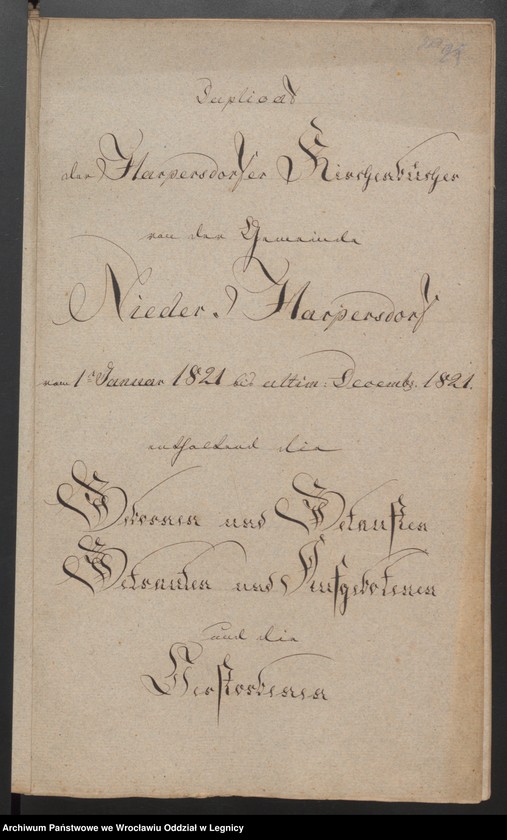 Duplicat
der Harpersdorfer Kirchenbücher
von der Gemeinde
Nieder-Harpersdorf
vom 1t Januar 1821 bis ultim: Decemb. 1821.
enthaltend die
Gebornen und Getauften
Getrauten und Aufgebotenen
und die
Verstorbenen
Archiwum Państwowe we Wrocławiu Oddział w Legnicy